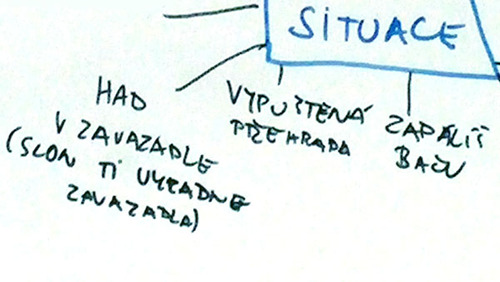 SITUACE
HAD
V ZAVAZADLE
(SLON TI VYPADNE
ZAVAZADLA)
VYPUŠTĚNÁ
PŘEHRADA
ZAPÁLÍŠ
BAČU